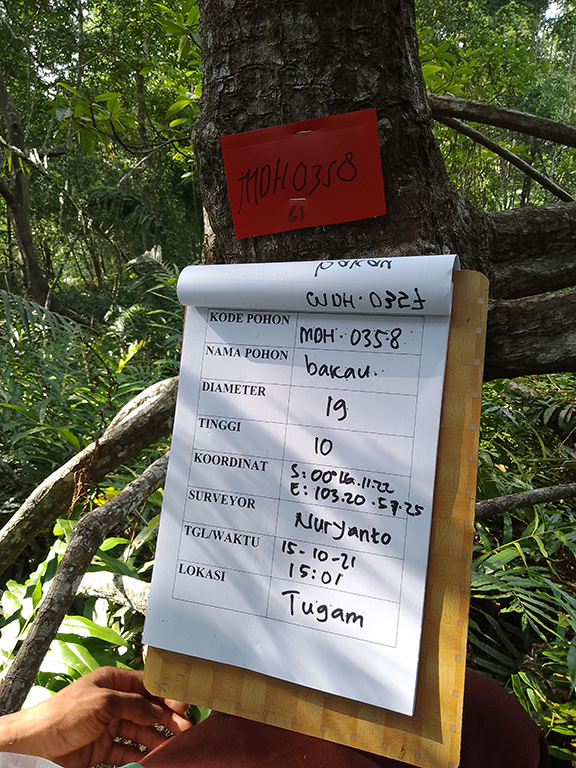 MDH0358
61
pohon
KODE POHON MDH. 0358
NAMA POHON bakau.
DIAMETER 19
TINGGI 10
KOORDINAT S: 00°16.11.22
E: 103.20.57.25
SURVEYOR Nuryanto
TGL/WAKTU 15-10-21
15:01
LOKASI Tugam